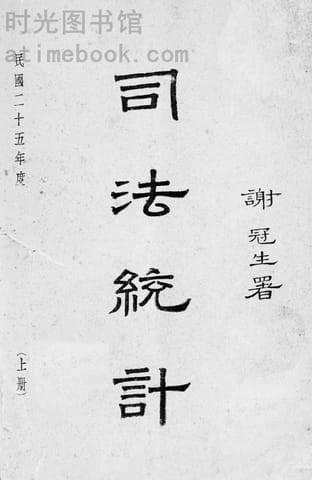 时光图书馆
atimebook.com
謝冠生署
司法統計
民國二十五年度
（上册）